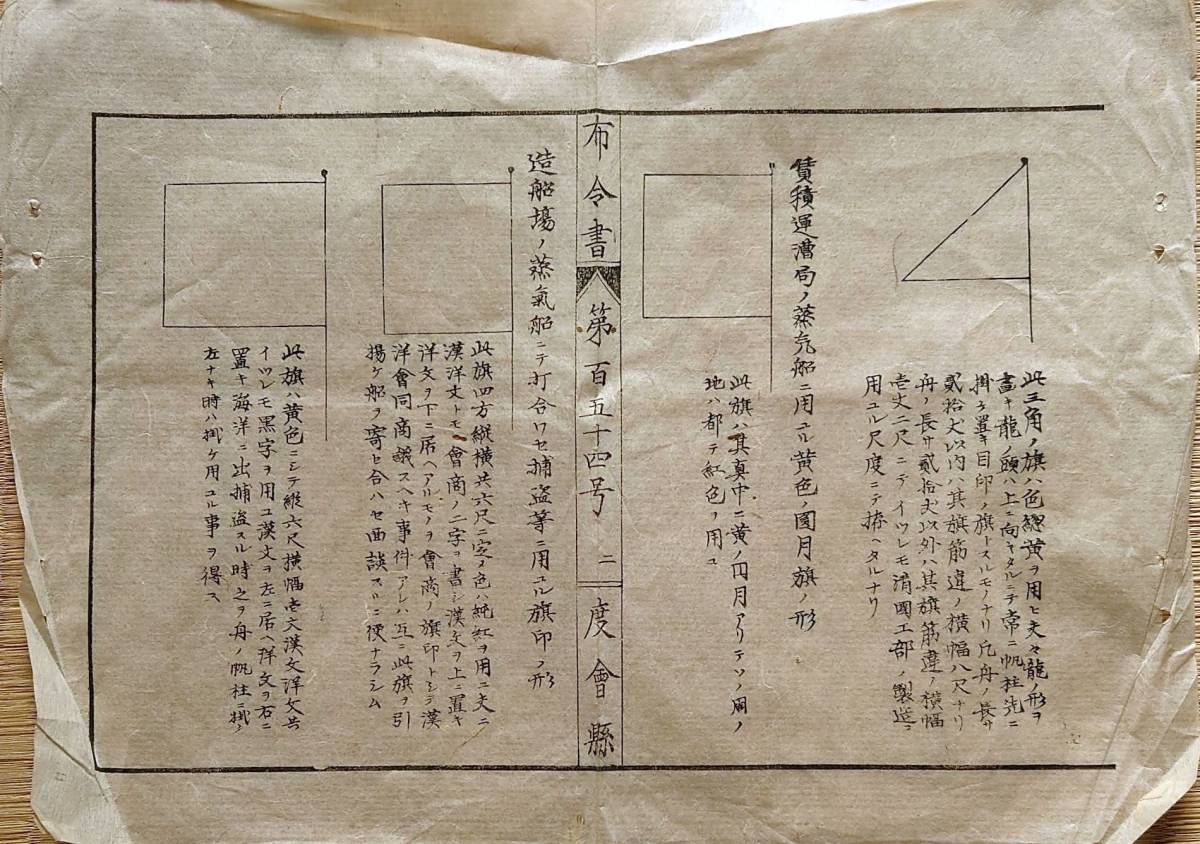 此三角ノ旗ハ色總黄ヲ用ヒ夫々龍ノ形ヲ
畫キ龍ノ頭ハ上ニ向キタルニテ常ニ帆柱先ニ
掛ケ置キ目印ノ旗トスルモノナリ凡舟ノ長サ
貳拾丈以内ハ其旗筋違ノ横幅八尺ナリ
舟ノ長サ貳拾丈以外ハ其旗筋違ノ横幅
壱丈二尺ニテイツレモ清國工部ノ製造ニ
用ユル尺度ニテ拵ヘタルナリ
賃積運漕局ノ蒸気船ニ用ユル黄色ノ圓月旗ノ形
此旗ハ其真中ニ黄ノ円月アリテソノ周ノ
地ハ都テ紅色ヲ用ユ
布令書 第百五十四号 二 度會縣
造船場ノ蒸氣船ニテ打合ワセ捕盗等ニ用ユル旗印ノ形
此旗四方縦横共六尺ニ定メ色ハ純紅ヲ用ユ文ニ
漢洋文トモ會商ノ二字ヲ書シ漢文ヲ上ニ置キ
洋文ヲ下ニ居ヘアルモノヲ會商ノ旗印トシテ漢
洋會同商議スヘキ事件アレハ互ニ此旗ヲ引
揚ケ船ヲ寄セ合ハセ面談スルニ便ナラシム
此旗ハ黄色ニシテ縦六尺横幅壱丈漢文洋文共
イツレモ黒字ヲ用ユ漢文ヲ左ニ居ヘ洋文ヲ右ニ
置キ海洋ニ出捕盗スル時之ヲ舟ノ帆柱ニ掛ケ
左ナキ時ハ掛ケ用ユル事ヲ得ス